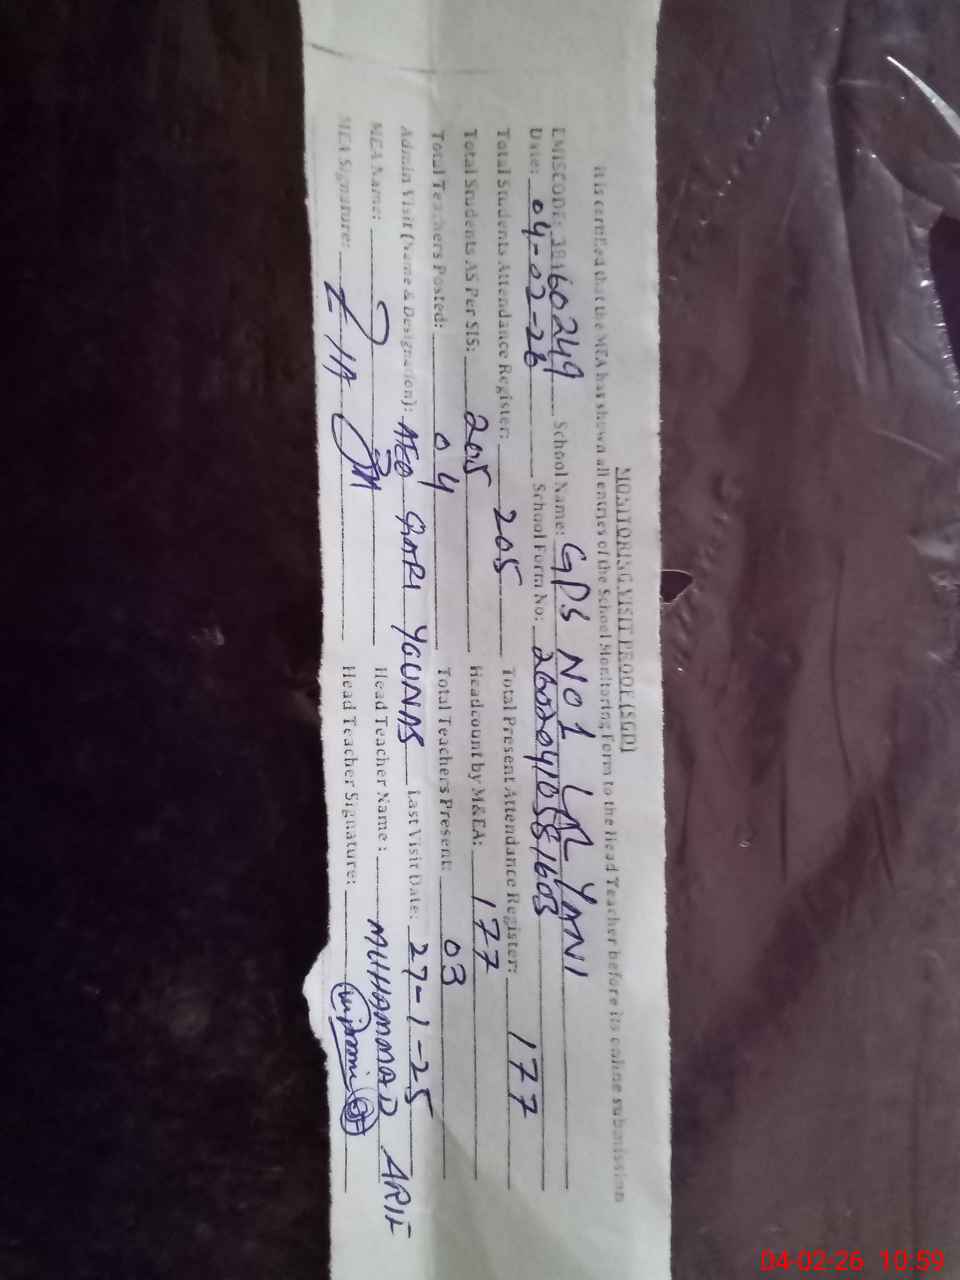 MONITORING VISIT PROOF (SGD)
It is certified that the MEA has shown all entries of the School Monitoring Form to the Head Teacher before its online submission
EMISCODE: 38160249 School Name: GPS NO1 LAL YANI
Date: 04-02-26 School Form No: 26020410581603
Total Students Attendance Register: 205 Total Present Attendance Register: 177
Total Students AS Per SIS: 205 Headcount by M&EA: 177
Total Teachers Posted: 04 Total Teachers Present: 03
Admin Visit (Name & Designation): AEO QARI YOUNAS Last Visit Date: 27-1-25
MEA Name: Head Teacher Name: MUHAMMAD ARIF
MEA Signature: Head Teacher Signature:
04-02-26 10:59